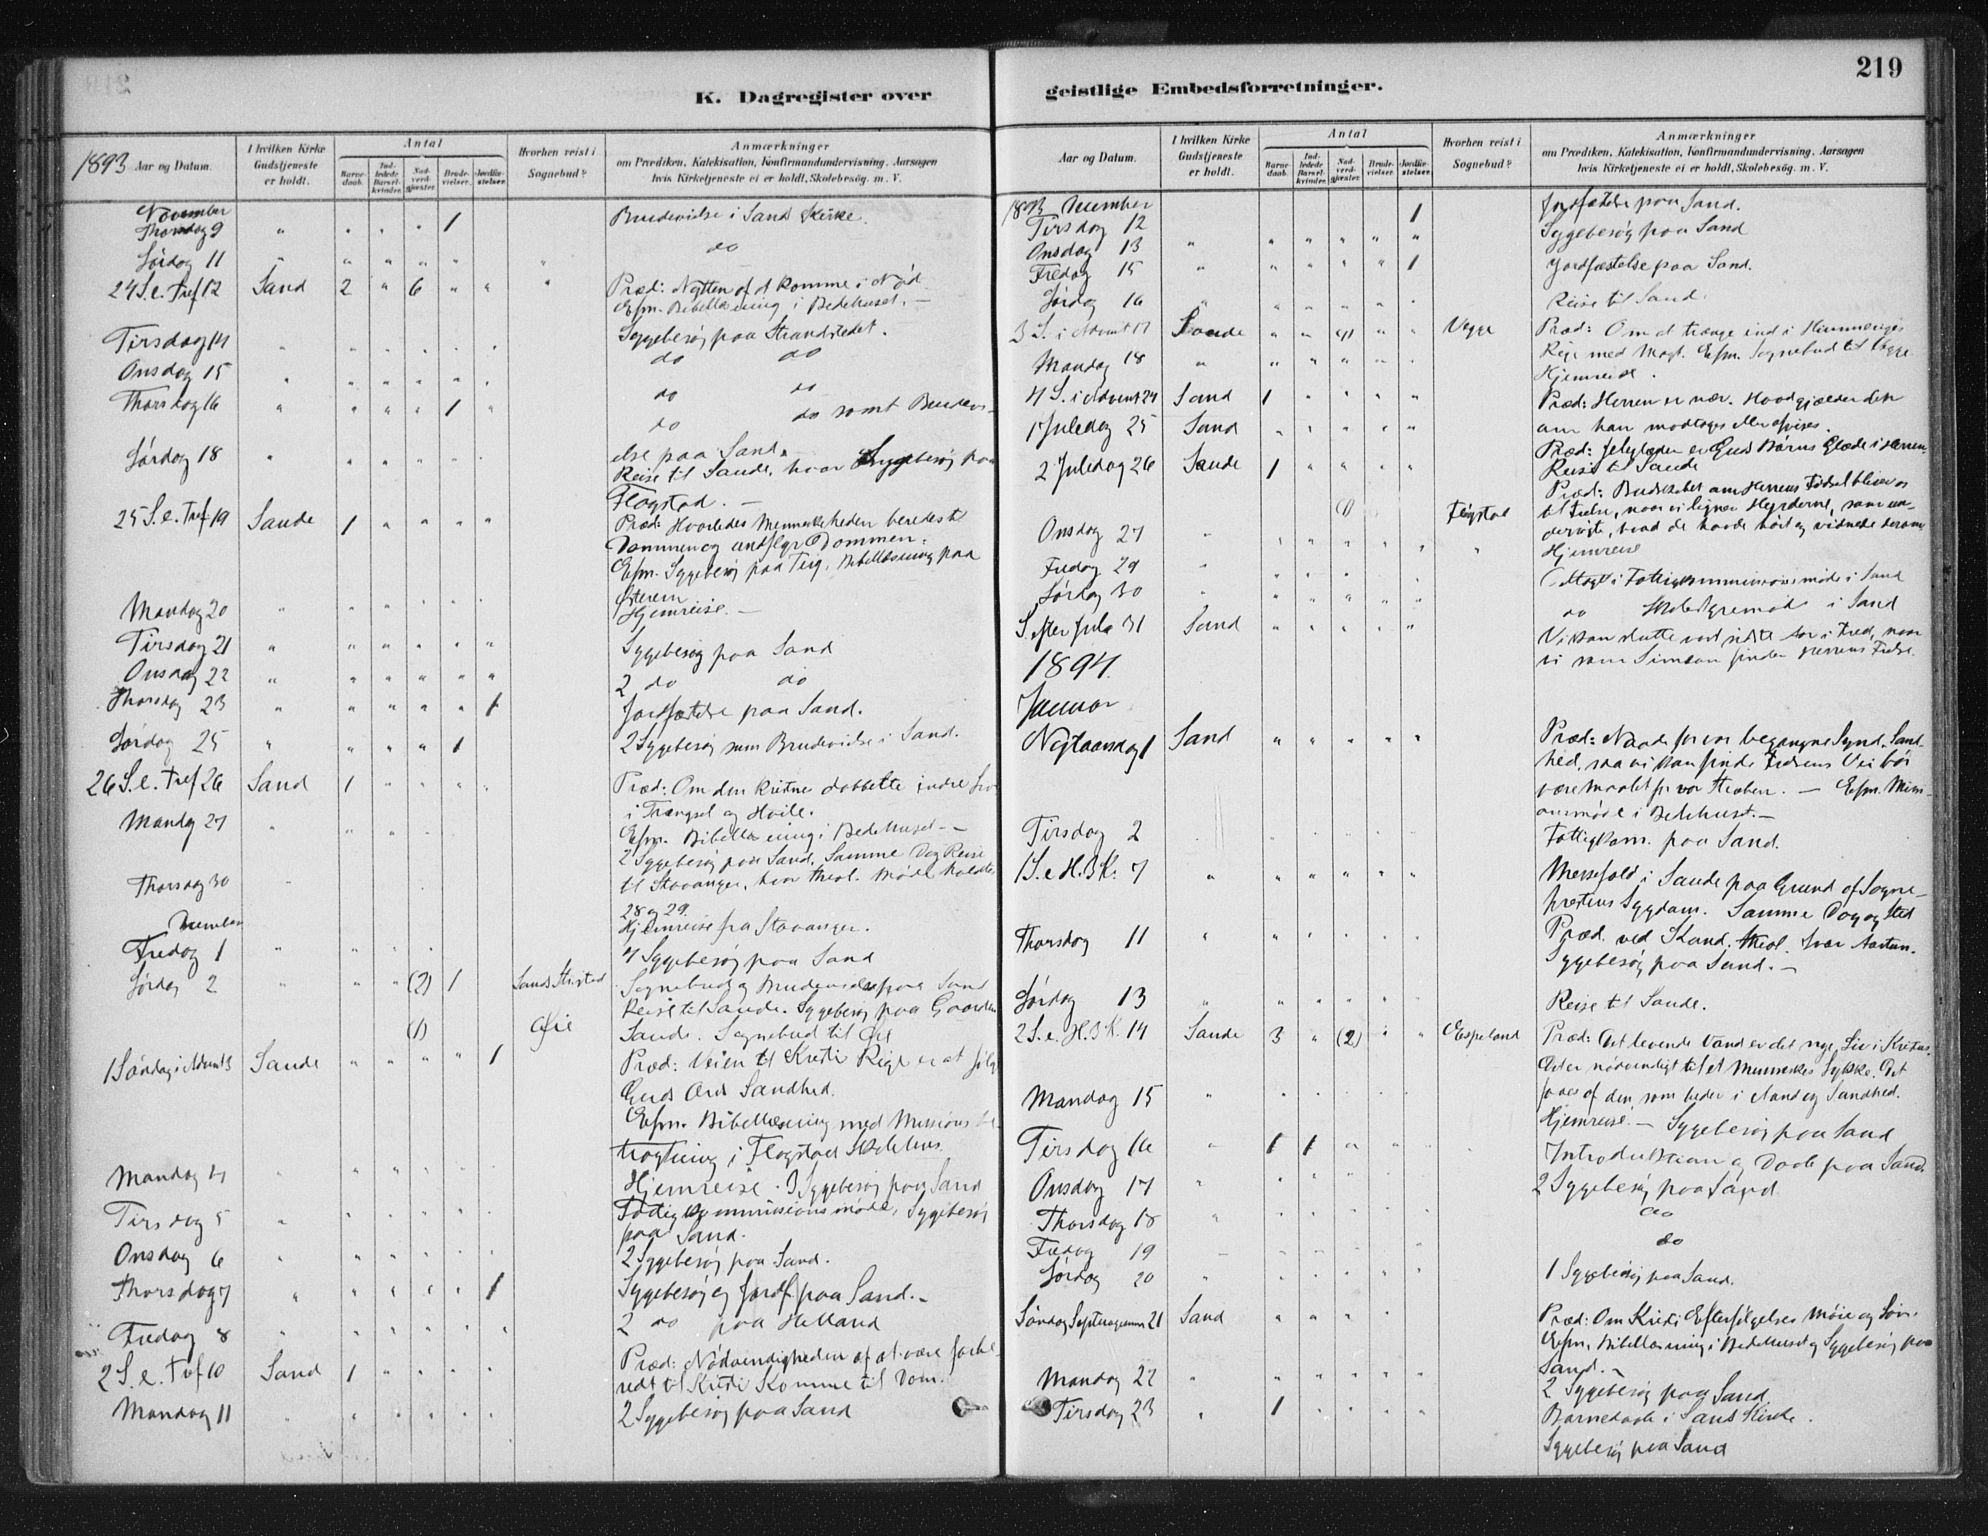 K. Dagregister over
1893 Aar og Datum.
I hvilken Kirke Gudstjeneste er holdt.
Antal
Barnedaab. Indledede Barselkvinder. Nadverdgjæster. Brudevielser. Jordfæstelser.
Hvorhen reist i Sognebud?
Anmærkninger
om Prædiken, Katekisation, Konfirmandundervisning, Aarsagen
hvis Kirketjeneste ei er holdt, Skolebesøg. m. V.
November
Thorsdag 9 " " " " 1 Brudevielse i Sand Kirke.
Lørdag 11 " " " " " " do
24 S. e. Tref 12 Sand 2 " 6 " " " Præd: Nytten af at komme i Nød.
Efm. Bibellæsning i Bedehuset. —
Tirsdag 14 Sygebesøg paa Strandstedet.
Onsdag 15 do do
Thorsdag 16 1 do do
do do samt Brudevi-
Lørdag 18 else paa Sand.
Reise til Sande, hvor Sygebesøg paa
Flogstad. —
25 S. e. Tref 19 Sande 1 " " " " Præd: Hvorledes Menneskeheden beredes til
Dommen og undflyr Dommen.
Efm. Sygebesøg paa Teig. Bibellæsning paa
Mandag 20 Hjemreise. —
Tirsdag 21 Sygebesøg paa Sand
Onsdag 22 2 do do
Thorsdag 23 " " " " " 1 Jordfæstelse paa Sand.
Lørdag 25 " " " " 1 2 Sygebesøg samt Brudevielse i Sand.
26 S. e. Tref 26 Sand 1 Præd: Om den kristne dobbelte indre
i Trængsel og Hvile.
Mandag 27 Efm. Bibellæsning i Bedehuset —
2 Sygebesøg paa Sand. Samme Dag Reise
til Stavanger, hvor theol. Møde holdtes
28 og 29.
Thorsdag 30 Hjemreise fra Stavanger.
December
Fredag 1 4 Sygebesøg paa Sand
Lørdag 2 (2) 1 Sognebud og Brudevielse paa Sand
Reise til Sande. Sygebesøg paa Gaarden
(1) Øie Sande. Sognebud til Øie
1 Søndag i Advent 3 Sande " " " " 1 Præd: Veien til Kristi Rige er at følge
Guds Ords Sandhed.
Efm. Bibellæsning med Missions be-
tragtning i Flogstad Skolehus.
Mandag 4 Hjemreise. 3 Sygebesøg paa Sand
Tirsdag 5 Fattigkommissionsmøde, Sygebesøg
paa Sand.
Onsdag 6 2 Sygebesøg paa Sand.
Thorsdag 7 " " " " " 1 Sygebesøg og Jordf. paa Sand. —
Fredag 8 2 do paa Helland
2 S. e. Tref 10 Sand 1 Præd: Nødvendigheden af at være forbe-
redt til Kristi Komme til Dom.
Mandag 11 2 Sygebesøg paa Sand
geistlige Embedsforretninger.
219
Aar og Datum.
I hvilken Kirke Gudstjeneste er holdt.
Antal
Barnedaab. Indledede Barselkvinder. Nadverdgjæster. Brudevielser. Jordfæstelser.
Hvorhen reist i Sognebud?
Anmærkninger
om Prædiken, Katekisation, Konfirmandundervisning, Aarsagen
hvis Kirketjeneste ei er holdt, Skolebesøg. m. V.
1893 December
Tirsdag 12 1 Jordfæstelse paa Sand.
Onsdag 13 " " " " " " Sygebesøg paa Sand
Fredag 15 " " " " " 1 Jordfæstelse paa Sand.
Lørdag 16 Reise til Sand.
3 S. i Advent 17 Sande Præd: Om at trænge ind i Himmeriges
Rige med Magt. Efm. Sognebud til
Mandag 18 Hjemreise.
4 S. i Advent 24 Sand 1 Præd: Herren er nær. Hvad gjælder det
om han modtages eller afvises.
1 Juledag 25 Sand Præd: Juleglæden er Guds Børns Glæde i Herren
Reise til Sande
2 Juledag 26 Sande 1 Præd: Budskabet om Herrens Fødsel bliver os
(1) Flogstad til Frelse, naar vi ligner Hyrderne, som un-
dersøgte, hvad de havde hørt og vidnede derom
Onsdag 27 Hjemreise
Fredag 29 Deltaget i Fattigkommissionsmøde i Sand
Lørdag 30 do Skolestyremøde i Sand
S. efter Jula 31 Sand Vi kan slutte vort sidste Aar i Fred, naar
vi som Simeon finder Herrens Frelse.
1894.
Januar
Nytaarsdag 1 Sand Præd: Naade for vor begangne Synd, Sand-
hed, saa vi kan finde Fredens Vei bør
være Maalet for vor Stræben. — Efm. Missi-
onsmøde i Bedehuset. —
Tirsdag 2 Fattigkom. paa Sand.
1 S. e H. 3 K. 7 Messefald i Sande paa Grund af Sogne-
præstens Sygdom. Samme Dag og Sted
Præd. ved Kand. theol.
Thorsdag 11 Sygebesøg paa Sand. —
Lørdag 13 Reise til Sande.
2 S. e. H. 3 K. 14 Sande 3 " (2) " " Espeland Præd: Det levende Vand er det nye Liv i Kristus.
Det er nødvendigt til et Menneskes Lykke. Det
faaes af den, som beder i Aand og Sandhed.
Mandag 15 Hjemreise. — Sygebesøg paa Sand
Tirsdag 16 " 1 1 Introduktion og Daab paa Sand.
Onsdag 17 2 Sygebesøg paa Sand
Thorsdag 18 do
Fredag 19 do
Lørdag 20 1 Sygebesøg paa Sand.
Søndag Septuagesima 21 Sand Præd: Om Kristi Efterfølgelses Møie og Løn.
Efm. Bibellæsning i Bedehuset og Sygebesøg paa
Sand. —
Mandag 22 2 Sygebesøg paa Sand
Tirsdag 23 1 Barnedaab i Sand Kirke.
Sygebesøg paa Sand